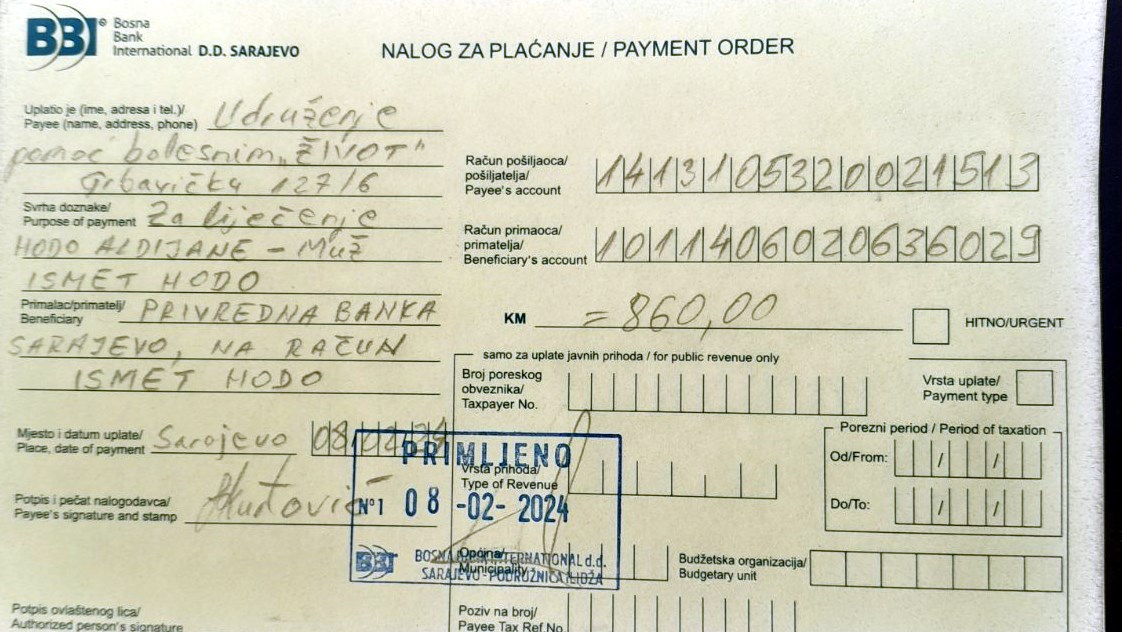 BBI® Bosna
Bank
International D.D. SARAJEVO
NALOG ZA PLAĆANJE / PAYMENT ORDER
Uplatio je (ime, adresa i tel.)/
Payee (name, address, phone) Udruženje
pomoć bolesnim „ŽIVOT"
Grbavička 127/6
Svrha doznake/
Purpose of payment Za liječenje
HODO ALDIJANE – Muž
ISMET HODO
Primalac/primatelj/
Beneficiary PRIVREDNA BANKA
SARAJEVO, NA RAČUN
ISMET HODO
Mjesto i datum uplate/
Place, date of payment Sarajevo 08/02/24
Potpis i pečat nalogodavca/
Payee's signature and stamp
Potpis ovlaštenog lica/
Authorized person's signature
Račun pošiljaoca/
pošiljatelja/
Payee's account 1413105320021513
Račun primaoca/
primatelja/
Beneficiary's account 1011406020636029
KM =860,00
HITNO/URGENT
samo za uplate javnih prihoda / for public revenue only
Broj poreskog
obveznika/
Taxpayer No.
Vrsta uplate/
Payment type
Porezni period / Period of taxation
Od/From: / /
Do/To: / /
Vrsta prihoda/
Type of Revenue
Općina/
Municipality
Budžetska organizacija/
Budgetary unit
Poziv na broj/
Payee Tax Ref No
PRIMLJENO
N°1 08 -02- 2024
BBI BOSNA BANK INTERNATIONAL d.d.
SARAJEVO - PODRUŽNICA ILIDŽA